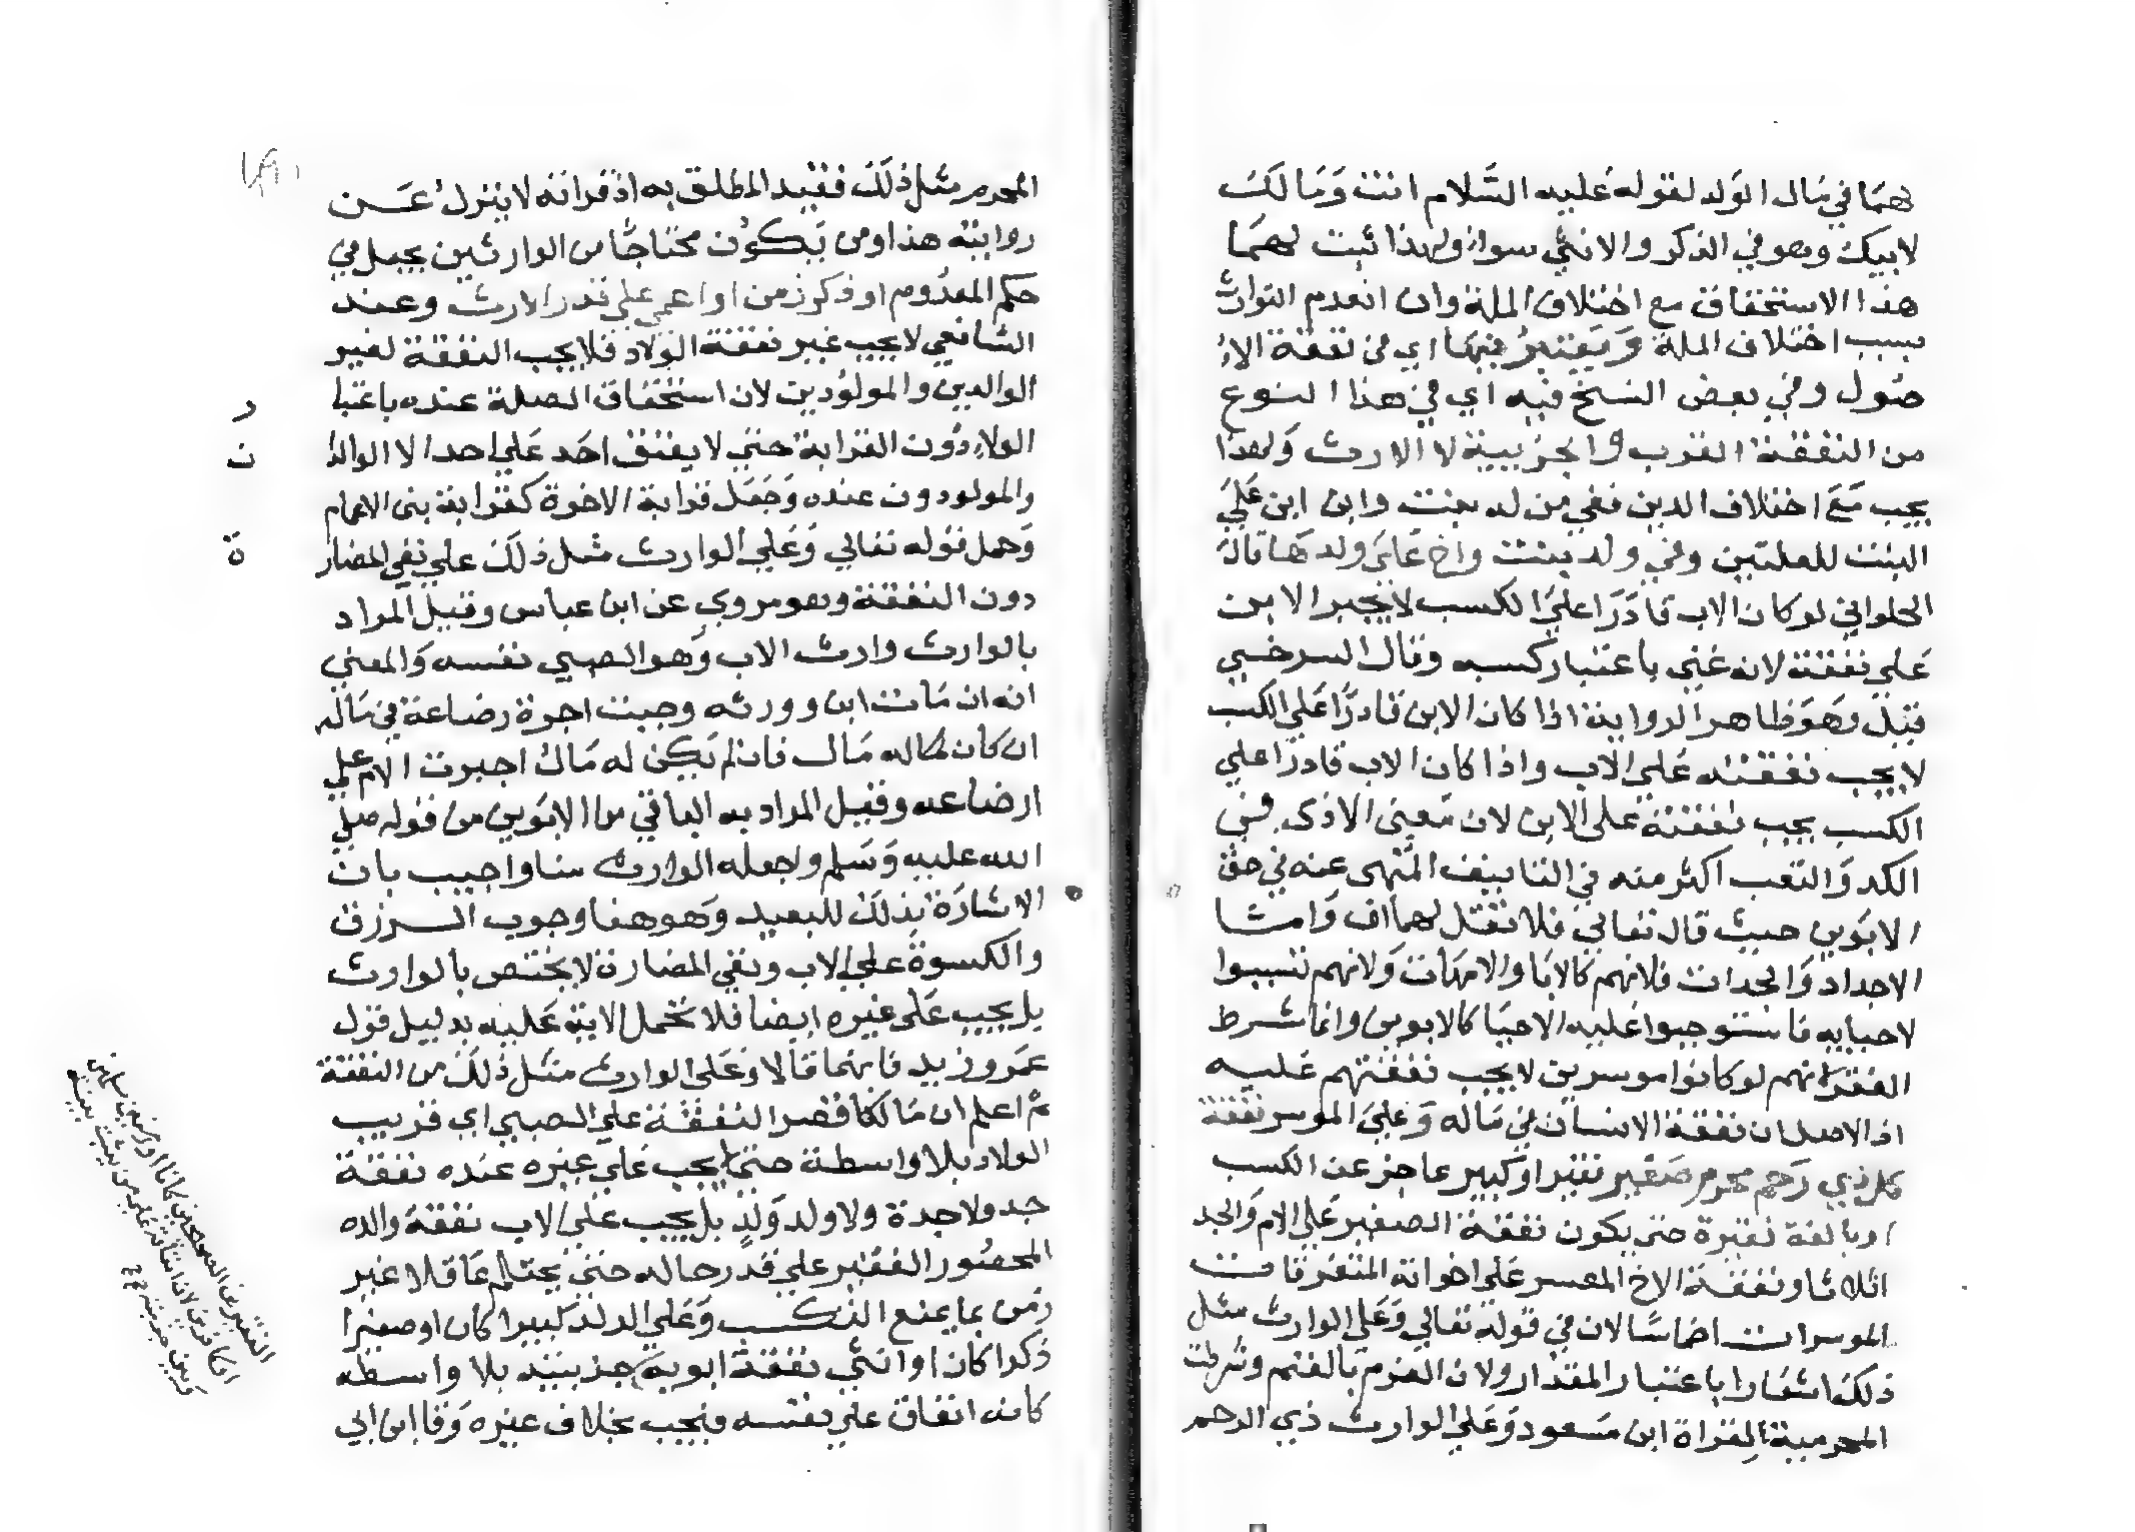 لهما في مال الولد لقوله عليه السلام انت ومالك
لابيك وهو في الذكر والانثى سواء ولهذا ثبت لهما
هذا الاستحقاق مع اختلاف الملة وان انعدم التوارث
بسبب اختلاف الملة ويعتبر فيها اي في نفقة الا
صول وفي بعض النسخ فيه اي في هذا النوع
من النفقة القرب والجزيية لا الارث ولهذا
يجب مع اختلاف الدين ففي من له بنت وابن ابن علي
البنت للعلتين وفي ولد بنت واخ علي ولدها قال
الحلواني لو كان الاب قادرا علي الكسب لا يجبر الابن
علي نفقته لانه غني باعتبار كسبه وقال السرخسي
قيل وهو ظاهر الرواية اذا كان الابن قادرا علي الكسب
لا يجب نفقته علي الاب واذا كان الاب قادرا علي
الكسب يجب نفقته علي الابن لان معني الاذي في
الكد والتعب اكثر منه في التافيف المنهي عنه في حق
الابوين حيث قال تعالي فلا تقل لهما اف واما
الاجداد والجدات فلانهم كالابا والامهات ولانهم تسببوا
لاحيايه فاستوجبوا عليه الاحيا كالابوين وانما شرط
الفقر لانهم لو كانوا موسرين لا يجب نفقتهم عليه
اذ الاصل ان نفقة الانسان في ماله وعلي الموسر نفقة
كل ذي رحم محرم صغير فقير او كبير عاجز عن الكسب
او بالغة فقيرة حتي يكون نفقة الصغير علي الام والجد
اثلاثا ونفقة الاخ المعسر علي اخواته المتفرقات
الموسرات اخماسا لان في قوله تعالي وعلي الوارث مثل
ذلك اشعارا باعتبار المقدار ولان الغرم بالغنم وشرطت
المحرمية لقراة ابن مسعود وعلي الوارث ذي الرحم
المحرم مثل ذلك فقيد المطلق به اذ قراته لا ينزل عن
روايته هذا ومن يكون محتاجا من الوارثين يجعل في
حكم المعدوم او ذكر زمن او اعمي علي قدر الارث وعند
الشافعي لا يجب غير نفقة الولاد فلا يجب النفقة لغير
الوالدين والمولودين لان استحقاق الصلة عنده باعتبا
ر
الولاد دون القرابة حتي لا يعتق احد علي احد الا الوالدا
ن
والمولودون عنده وجعل قرابة الاخوة كقرابة بني الاعمام
وحمل قوله تعالي وعلي الوارث مثل ذلك علي نفي المضار
ة
دون النفقة وهو مروي عن ابن عباس وقيل المراد
بالوارث وارث الاب وهو الصبي نفسه والمعني
انه ان مات ابن وورثه وجبت اجرة رضاعه في ماله
ان كان له مال فان لم يكن له مال اجبرت الام علي
ارضاعه وقيل المراد به الباقي من الابوين من قوله صلي
الله عليه وسلم واجعله الوارث منا واجيب بان
الاشارة بذلك للبعيد وهو هنا وجوب الرزق
والكسوة علي الاب ونفي المضارة لا يختص بالوارث
بل يجب علي غيره ايضا فلا تحمل الاية عليه بدليل قول
عمر وزيد فانهما قالا وعلي الوارث مثل ذلك من النفقة
ثم اعلم ان مالكا قصر النفقة علي الصبي اي قريب
الولاد بلا واسطة حتي لا يجب علي غيره عنده نفقة
جد ولا جدة ولا ولد ولد بل يجب علي الاب نفقة والده
المحصور الفقير علي قدر حاله حتي يحتلم عاقلا غير
زمن بما يمنع التكسب وعلي الولد كبيرا كان او صغيرا
ذكرا كان او انثي نفقة ابويه جزييته بلا واسطه
كانه انفاق علي نفسه فيجب بخلاف غيره وقا ابن ابي
الفقيرين الصحيحين كانا او زمنين مسلمين
او كافرين لان نفاذه علي من يثبت بينه
وبين جزييته